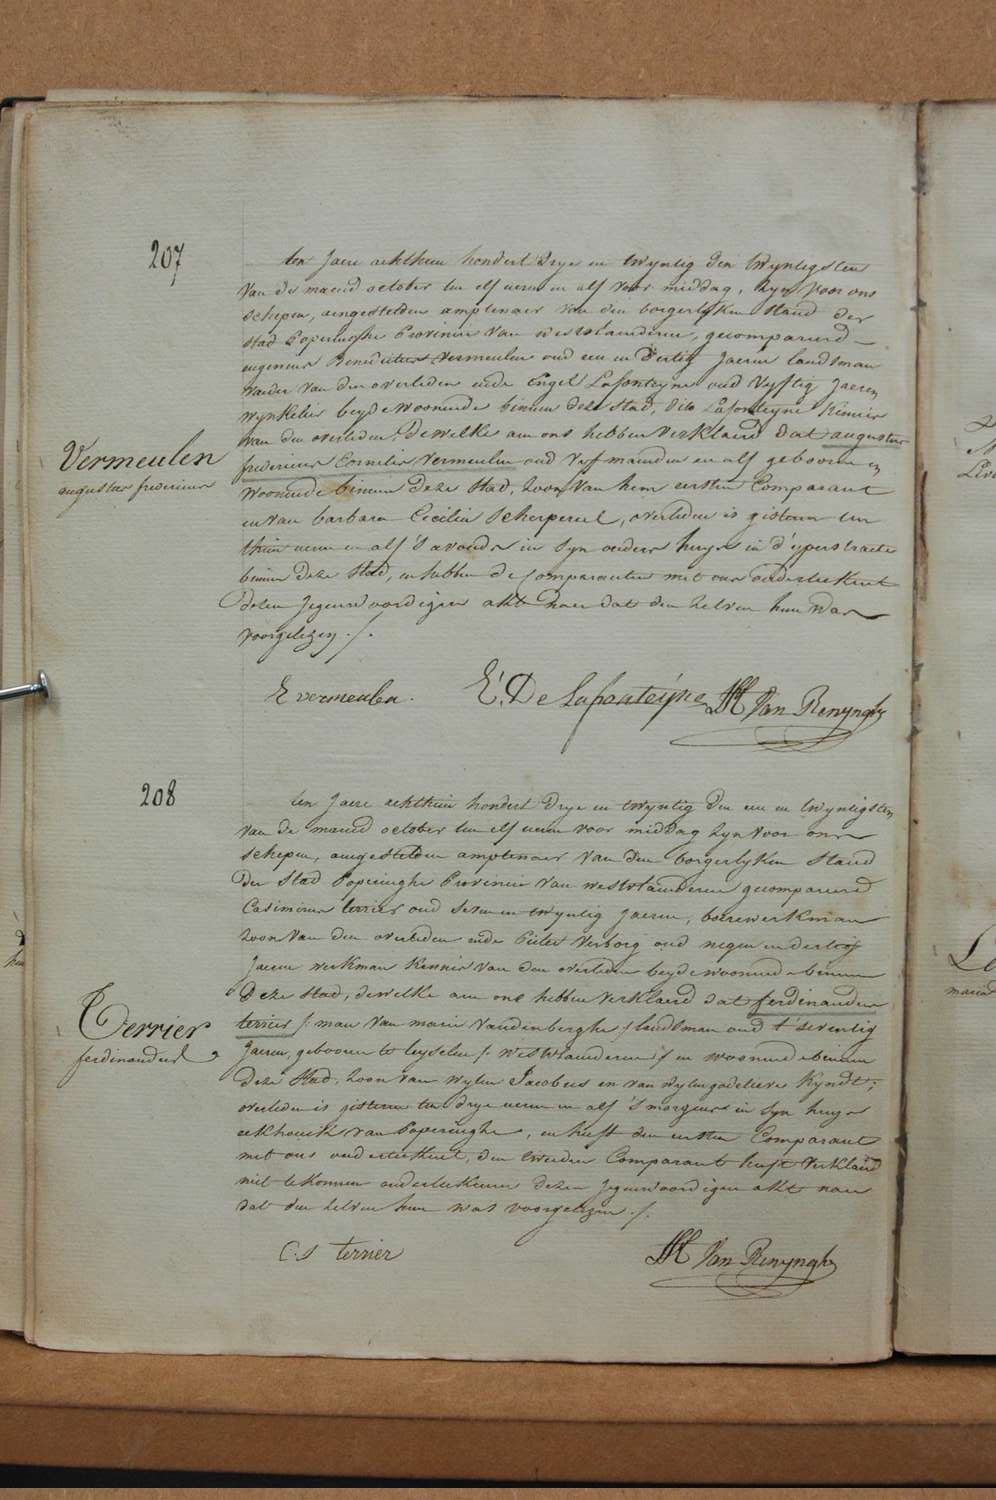 207
ten Jaere achthien hondert drye en twyntig den twyntigsten
van de maend october ten elf ueren en alf voor middag, zyn voor ons
schepen, aengestelden amptenaer van den borgerlyken stand der
stad Poperinghe Provincie van westvlaenderen, gecompareerd
eugenius Benedictus Vermeulen oud een en dertig Jaeren landsman
vaeder van den overleden ende Engel Lafonteyne oud vyftig Jaeren
wynkelier beyde woonende binnen deze stad, dito Lafonteyne Kennis
van den overleden, dewelke aen ons hebben verklaerd dat augustus
Vermeulen
augustus fredericus
fredericus Cornelis Vermeulen oud vyf maenden en alf gebooren en
woonende binnen deze stad, zoon van hem eersten Comparant
en van barbara Cecilia Scherpereel, overleden is gisteren ten
thien ueren en alf 's avonds in syn ouders huys in d'yperstraete
binnen deze stad, en hebben de comparanten met ons onderteekent
dezen Jegenwoordigen akt naer dat den zelven hun was
voorgelezen ./.
E vermeulen. E. De Lafonteyne VanRenynghe
208
ten Jaere achthien hondert drye en twyntig den een en twyntigsten
van de maend october ten elf ueren voor middag zyn voor ons
schepen, aengestelden amptenaer van den borgerlyken stand
der stad Poperinghe Provincie van westvlaenderen gecompareerd
Casimirus terrier oud seven en twyntig Jaeren, boerewerkman
zoon van den overleden ende Pieter Verborg oud negen en dertig
Jaeren werkman Kennis van den overleden beyde woonende binnen
deze stad, dewelke aen ons hebben verklaerd dat ferdinandus
Terrier
ferdinandus
terrier /: man van marie Vandenberghe :/ landsman oud t'seventig
Jaeren, gebooren te leysele /: Westvlaenderen :/ en woonende binnen
deze stad, zoon van wylen Jacobus en van wylen godelieve Kyndt;
overleden is gisteren ten drye ueren en alf 's morgens in syn huys
eekhouck van Poperinghe, en heeft den eersten Comparant
met ons onderteekent, den tweeden Comparant heeft verklaerd
niet te konnen onderteekenen dezen Jegenwoordigen akt naer
dat den zelven hun was voorgelezen ./.
C.s terrier Van Renynghe